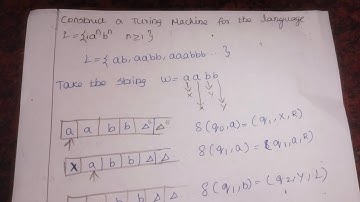 Construct a Turing Machine for the language
L = {a^n b^n n≥1}
L = {ab, aabb, aaabbb ... }
Take the string w = a a b b
X X Y Y
a a b b Δ Δ
δ(q0,a) = (q1, X, R)
X a b b Δ Δ
δ(q1,a) = (q1, a, R)
δ(q1,b) = (q2, Y, L)